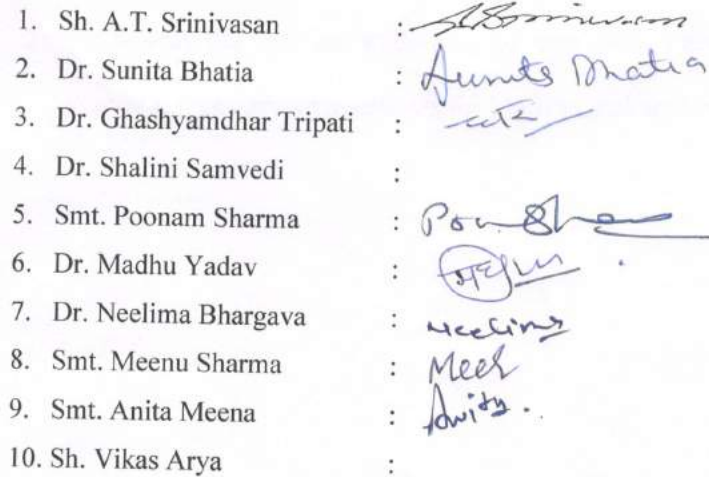 1. Sh. A.T. Srinivasan :
2. Dr. Sunita Bhatia : Sunita Bhatia
3. Dr. Ghashyamdhar Tripati :
4. Dr. Shalini Samvedi :
5. Smt. Poonam Sharma :
6. Dr. Madhu Yadav :
7. Dr. Neelima Bhargava : Neelima
8. Smt. Meenu Sharma :
9. Smt. Anita Meena : Anita.
10. Sh. Vikas Arya :